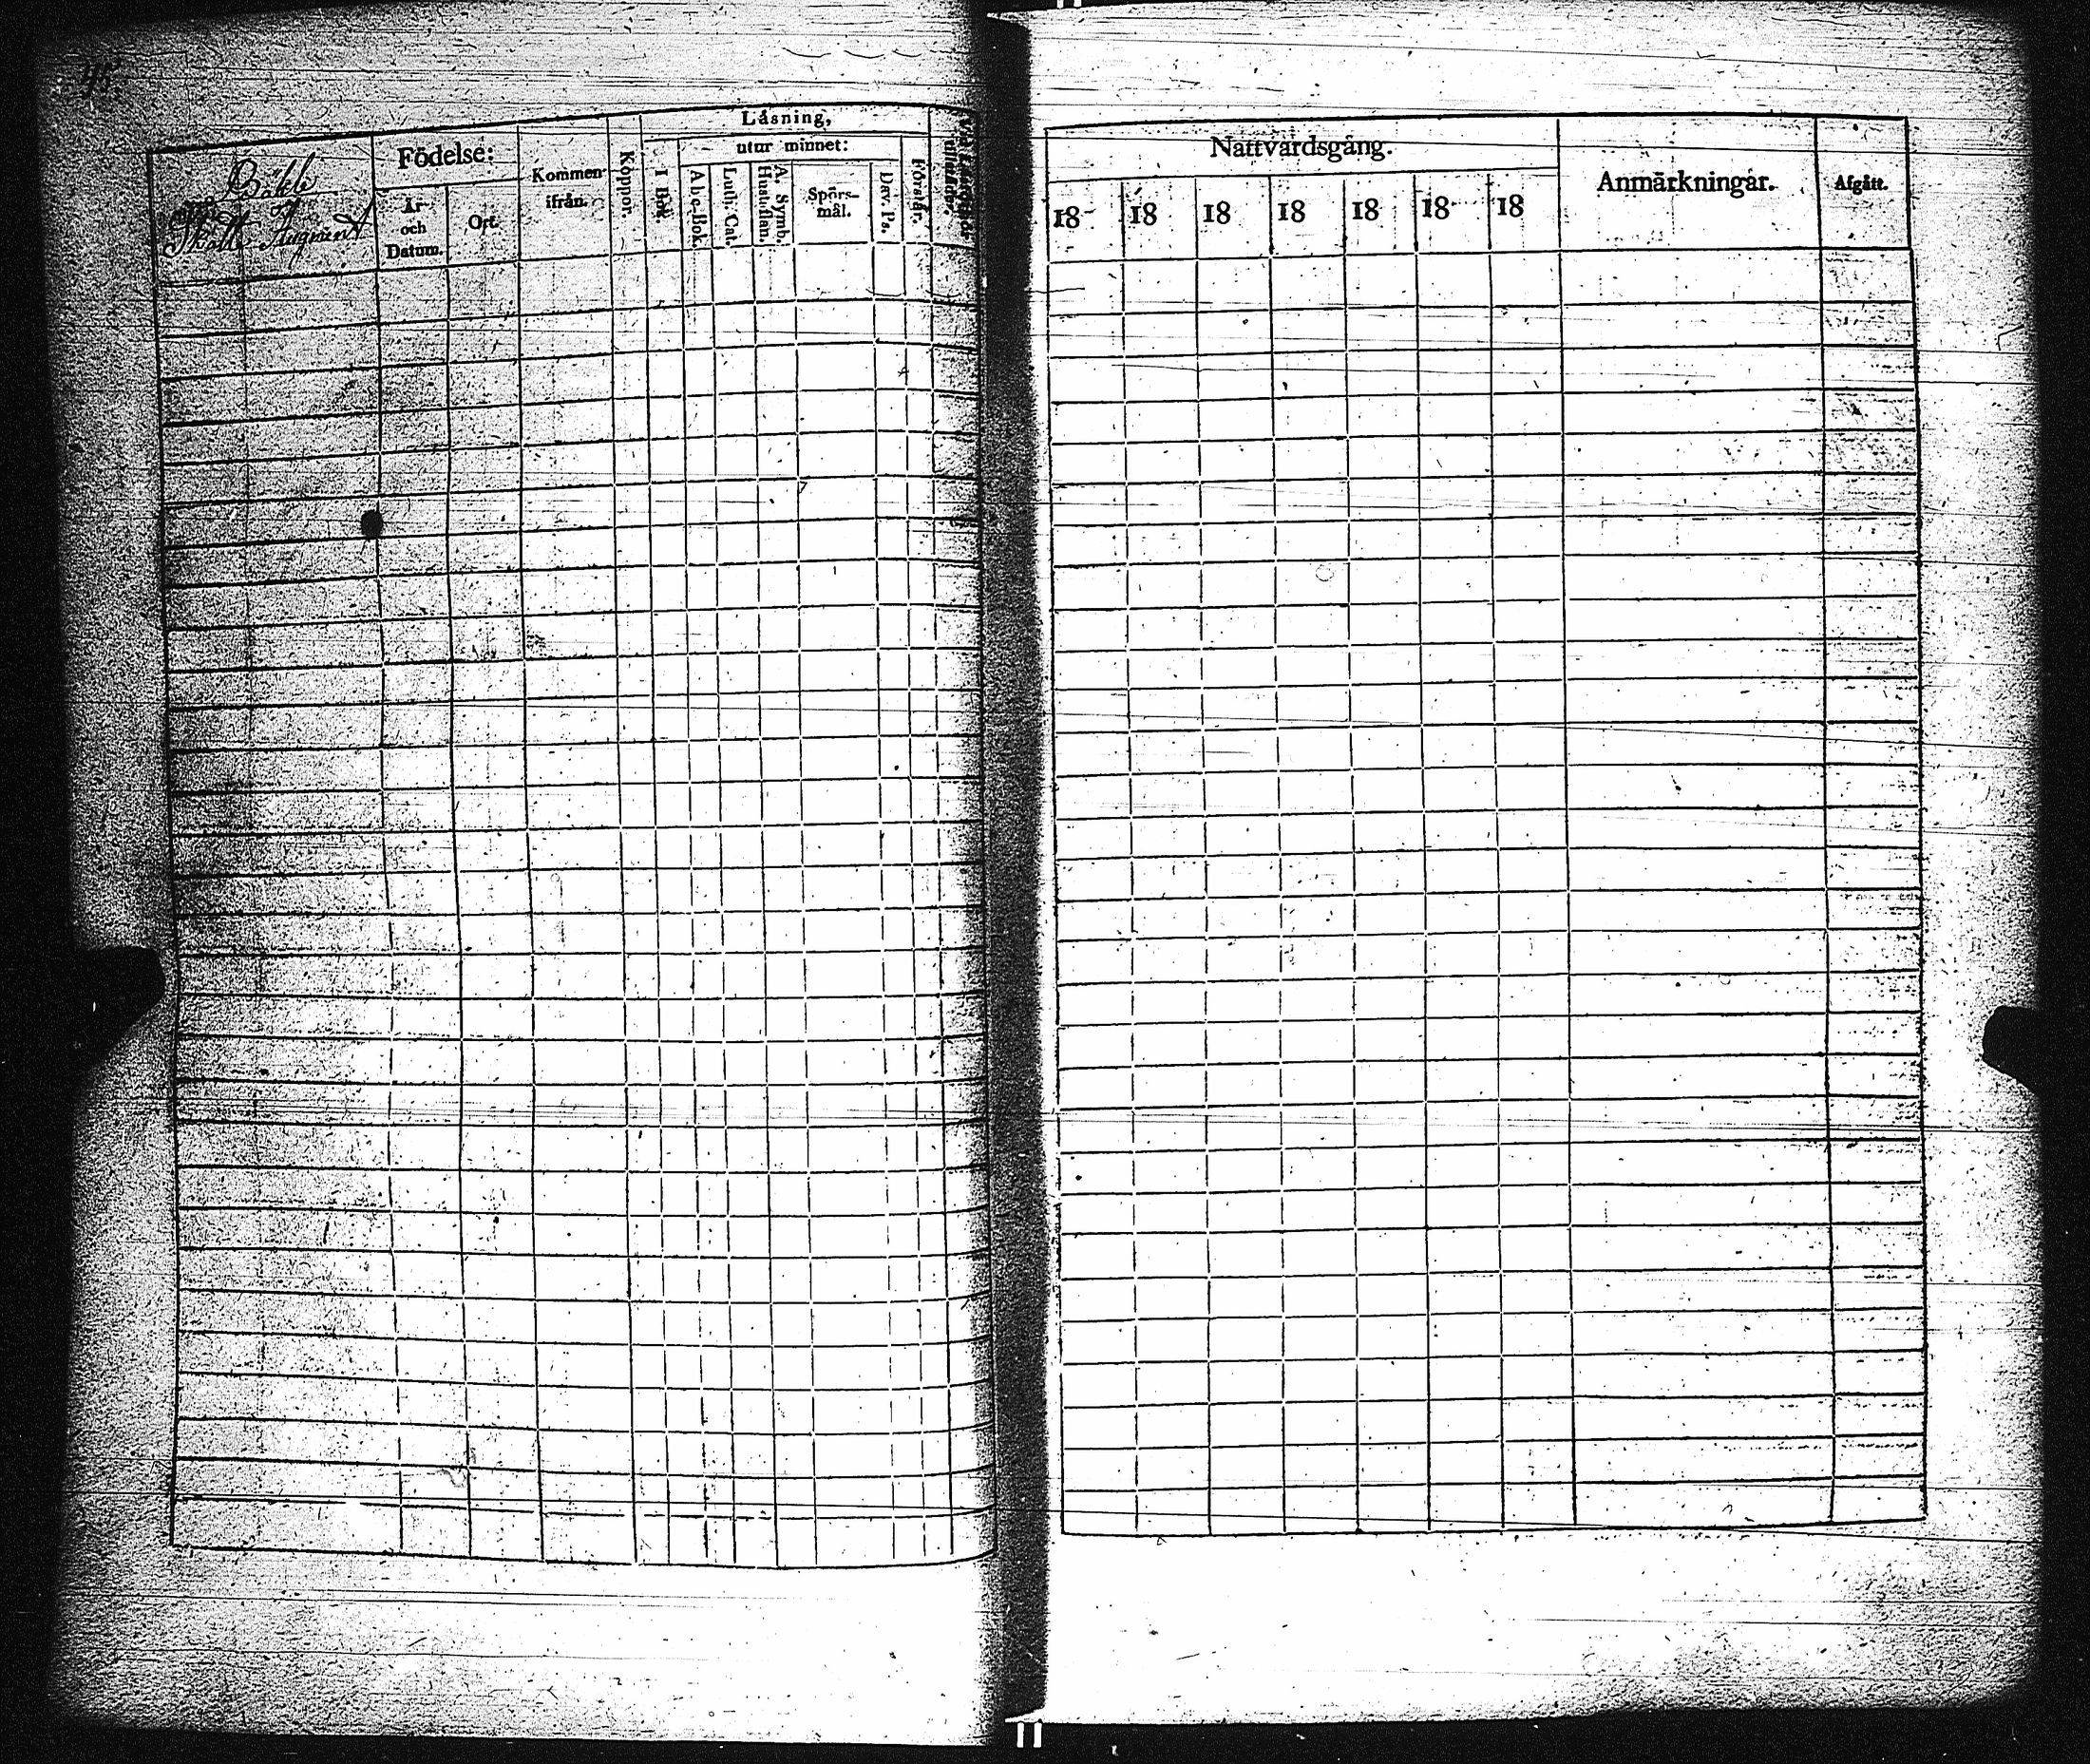 Böhle
Skatte Augment
Födelse:
År och Datum.
Ort.
Kommen ifrån.
Koppor.
Läsning,
I Bok
utur minnet:
A b c-Bok.
Luth. Cat.
A. Symb. Hustaflan.
Spörs-
mål.
Dav. Ps.
Förstår.
Nattvardsgång.
18 18 18 18 18 18 18
Anmärkningar.
Afgått.